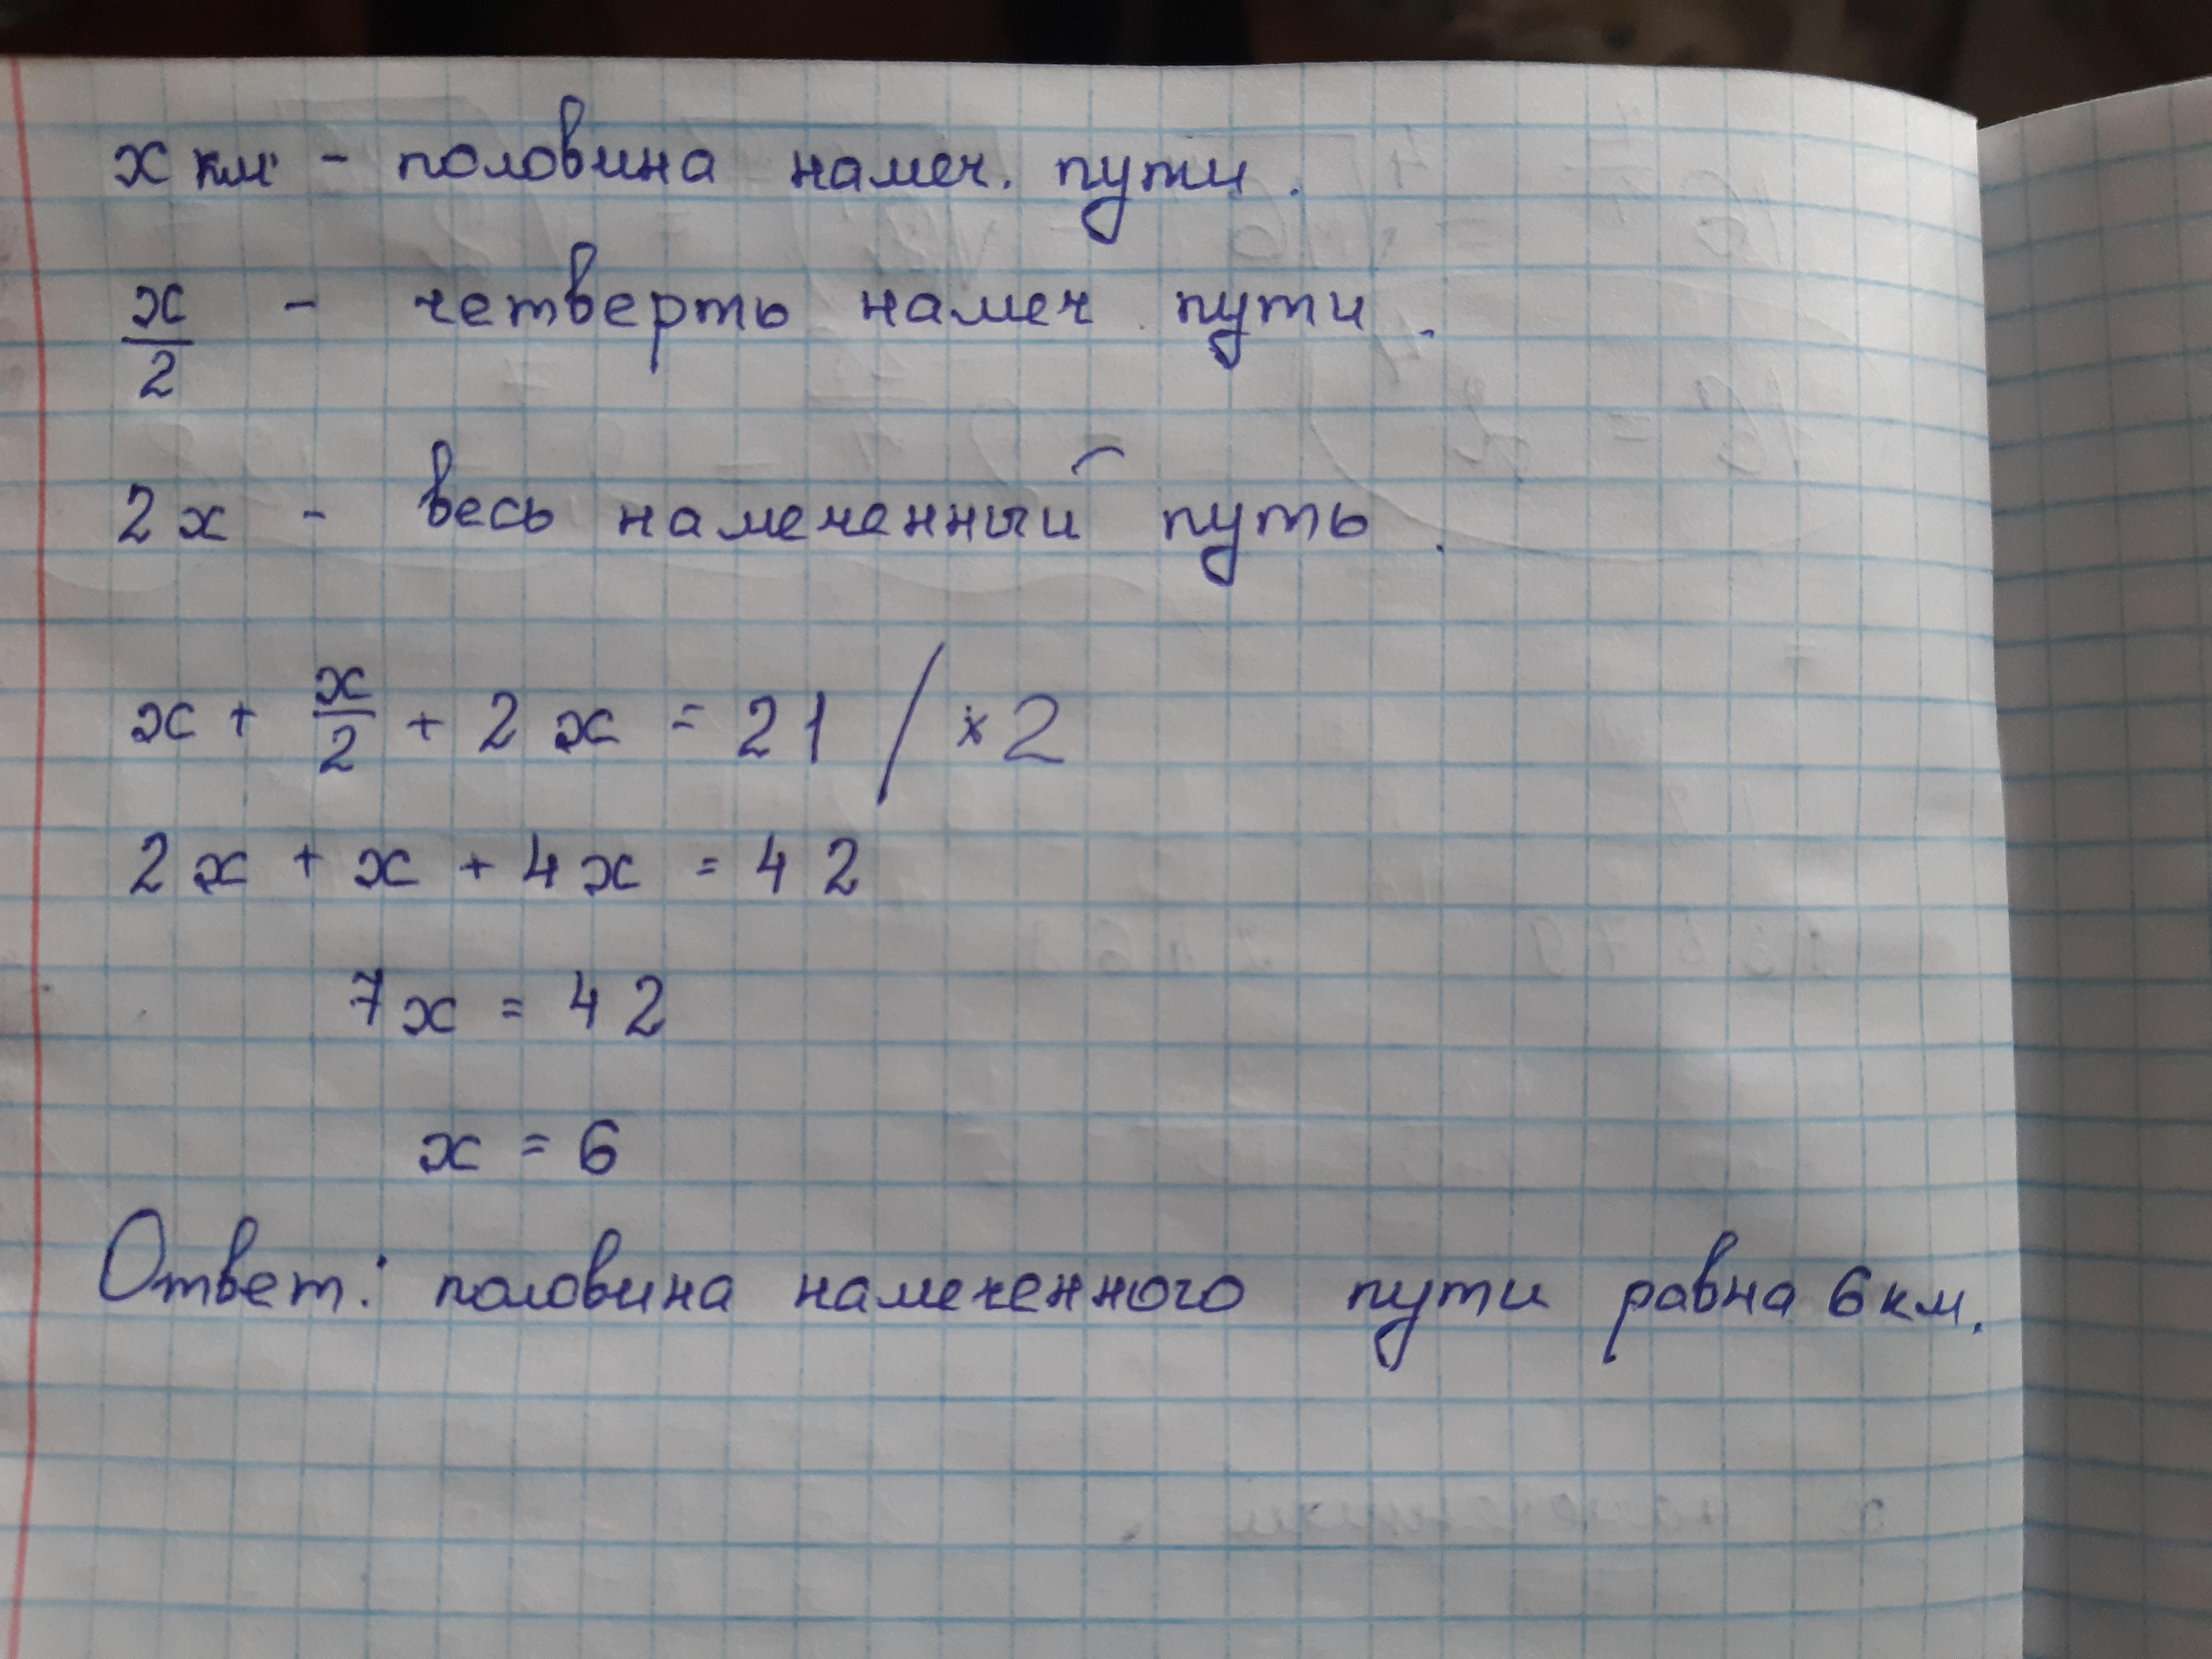 x км - половина намеч. пути.
x/2 - четверть намеч. пути.
2x - весь намеченный путь.
x + x/2 + 2x = 21 / × 2
2x + x + 4x = 42
7x = 42
x = 6
Ответ: половина намеченного пути равна 6 км.